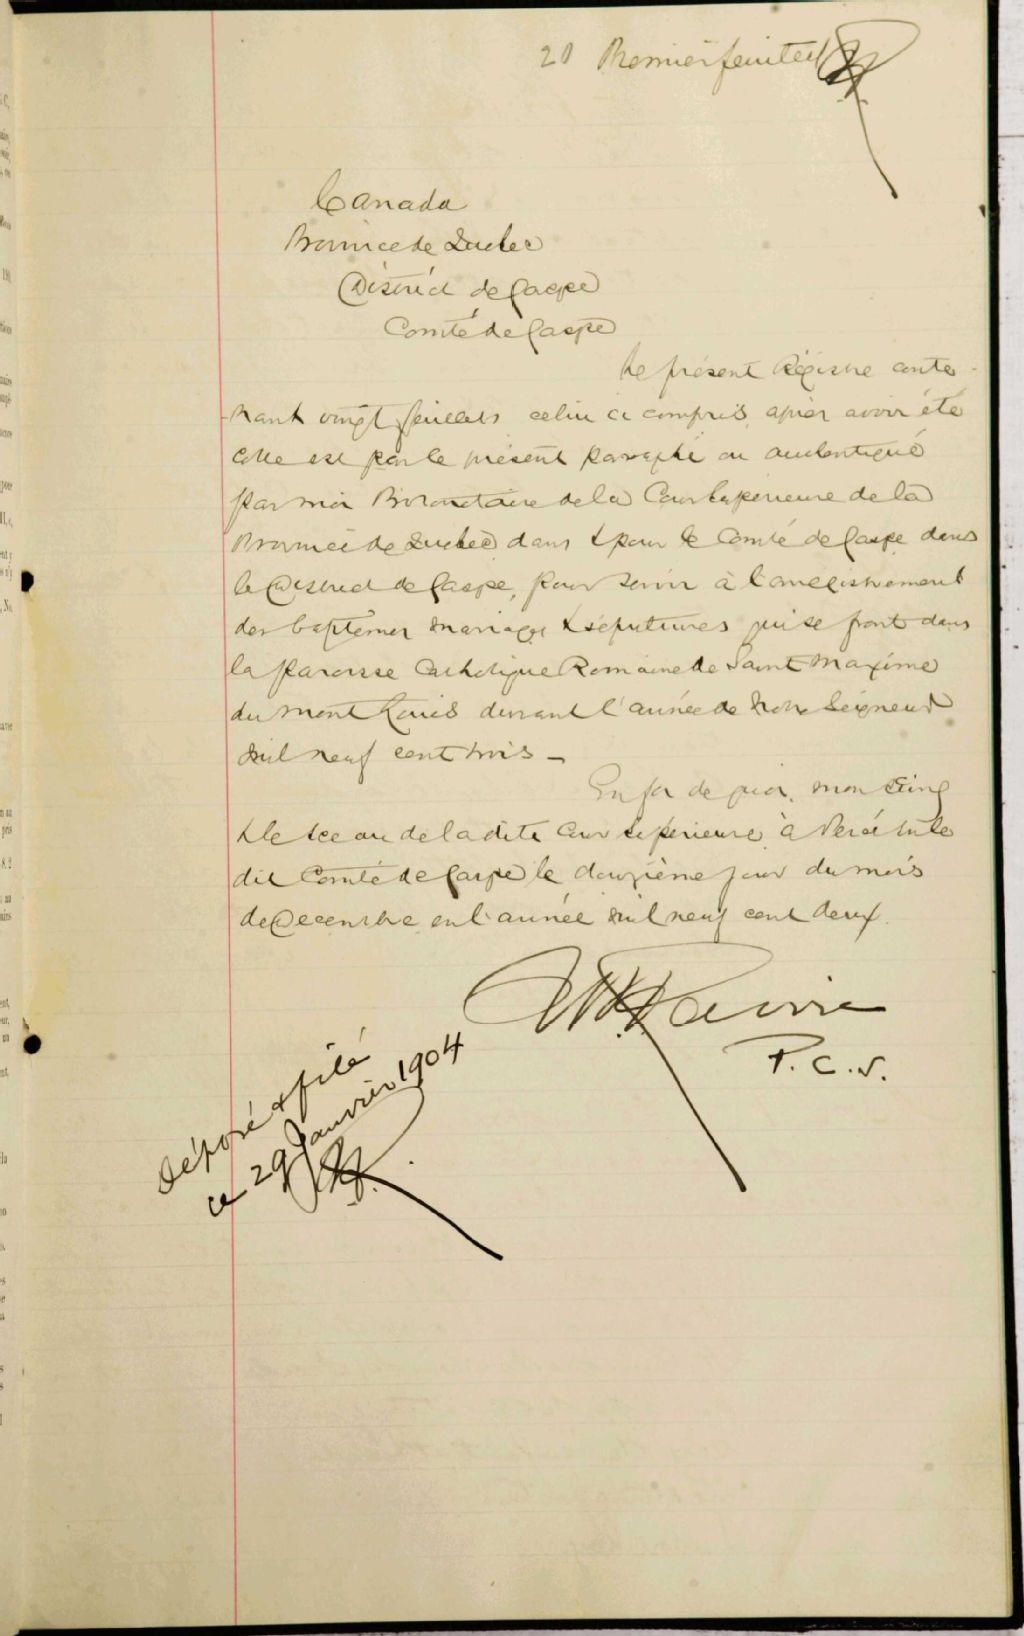 20 Premier feuillet
Canada
Province de Quebec
District de Gaspé
Comté de Gaspe
Le présent Régistre conte-
nant vingt feuillets celui ci compris, apres avoir été
cotté est par le présent paraphé ou autentiqué
par moi Protonotaire de la Cour Superieure de la
Province de Quebec dans & pour le Comté de Gaspe dans
le District de Gaspe, pour servir à l'enregistrement
des baptêmes mariages & sépultures qui se front dans
la paroisse Catholique Romaine de Saint Maxime
du Mont Louis durant l'année de Notre Seigneur
mil neuf cent trois —
En foi de quoi, mon Seing
& le sceau de la dite Cour Superieure à Percé
dit Comté de Gaspe le douzième jour du mois
de Decembre en l'année mil neuf cent deux.
P. C. S.
Déposé & filé
ce 29 Janvier 1904